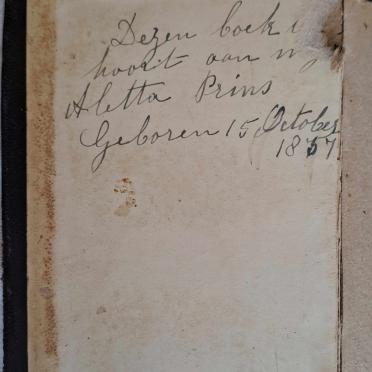 Dezen boek
hoort aan my
Aletta Prins
Geboren 15 October
1857